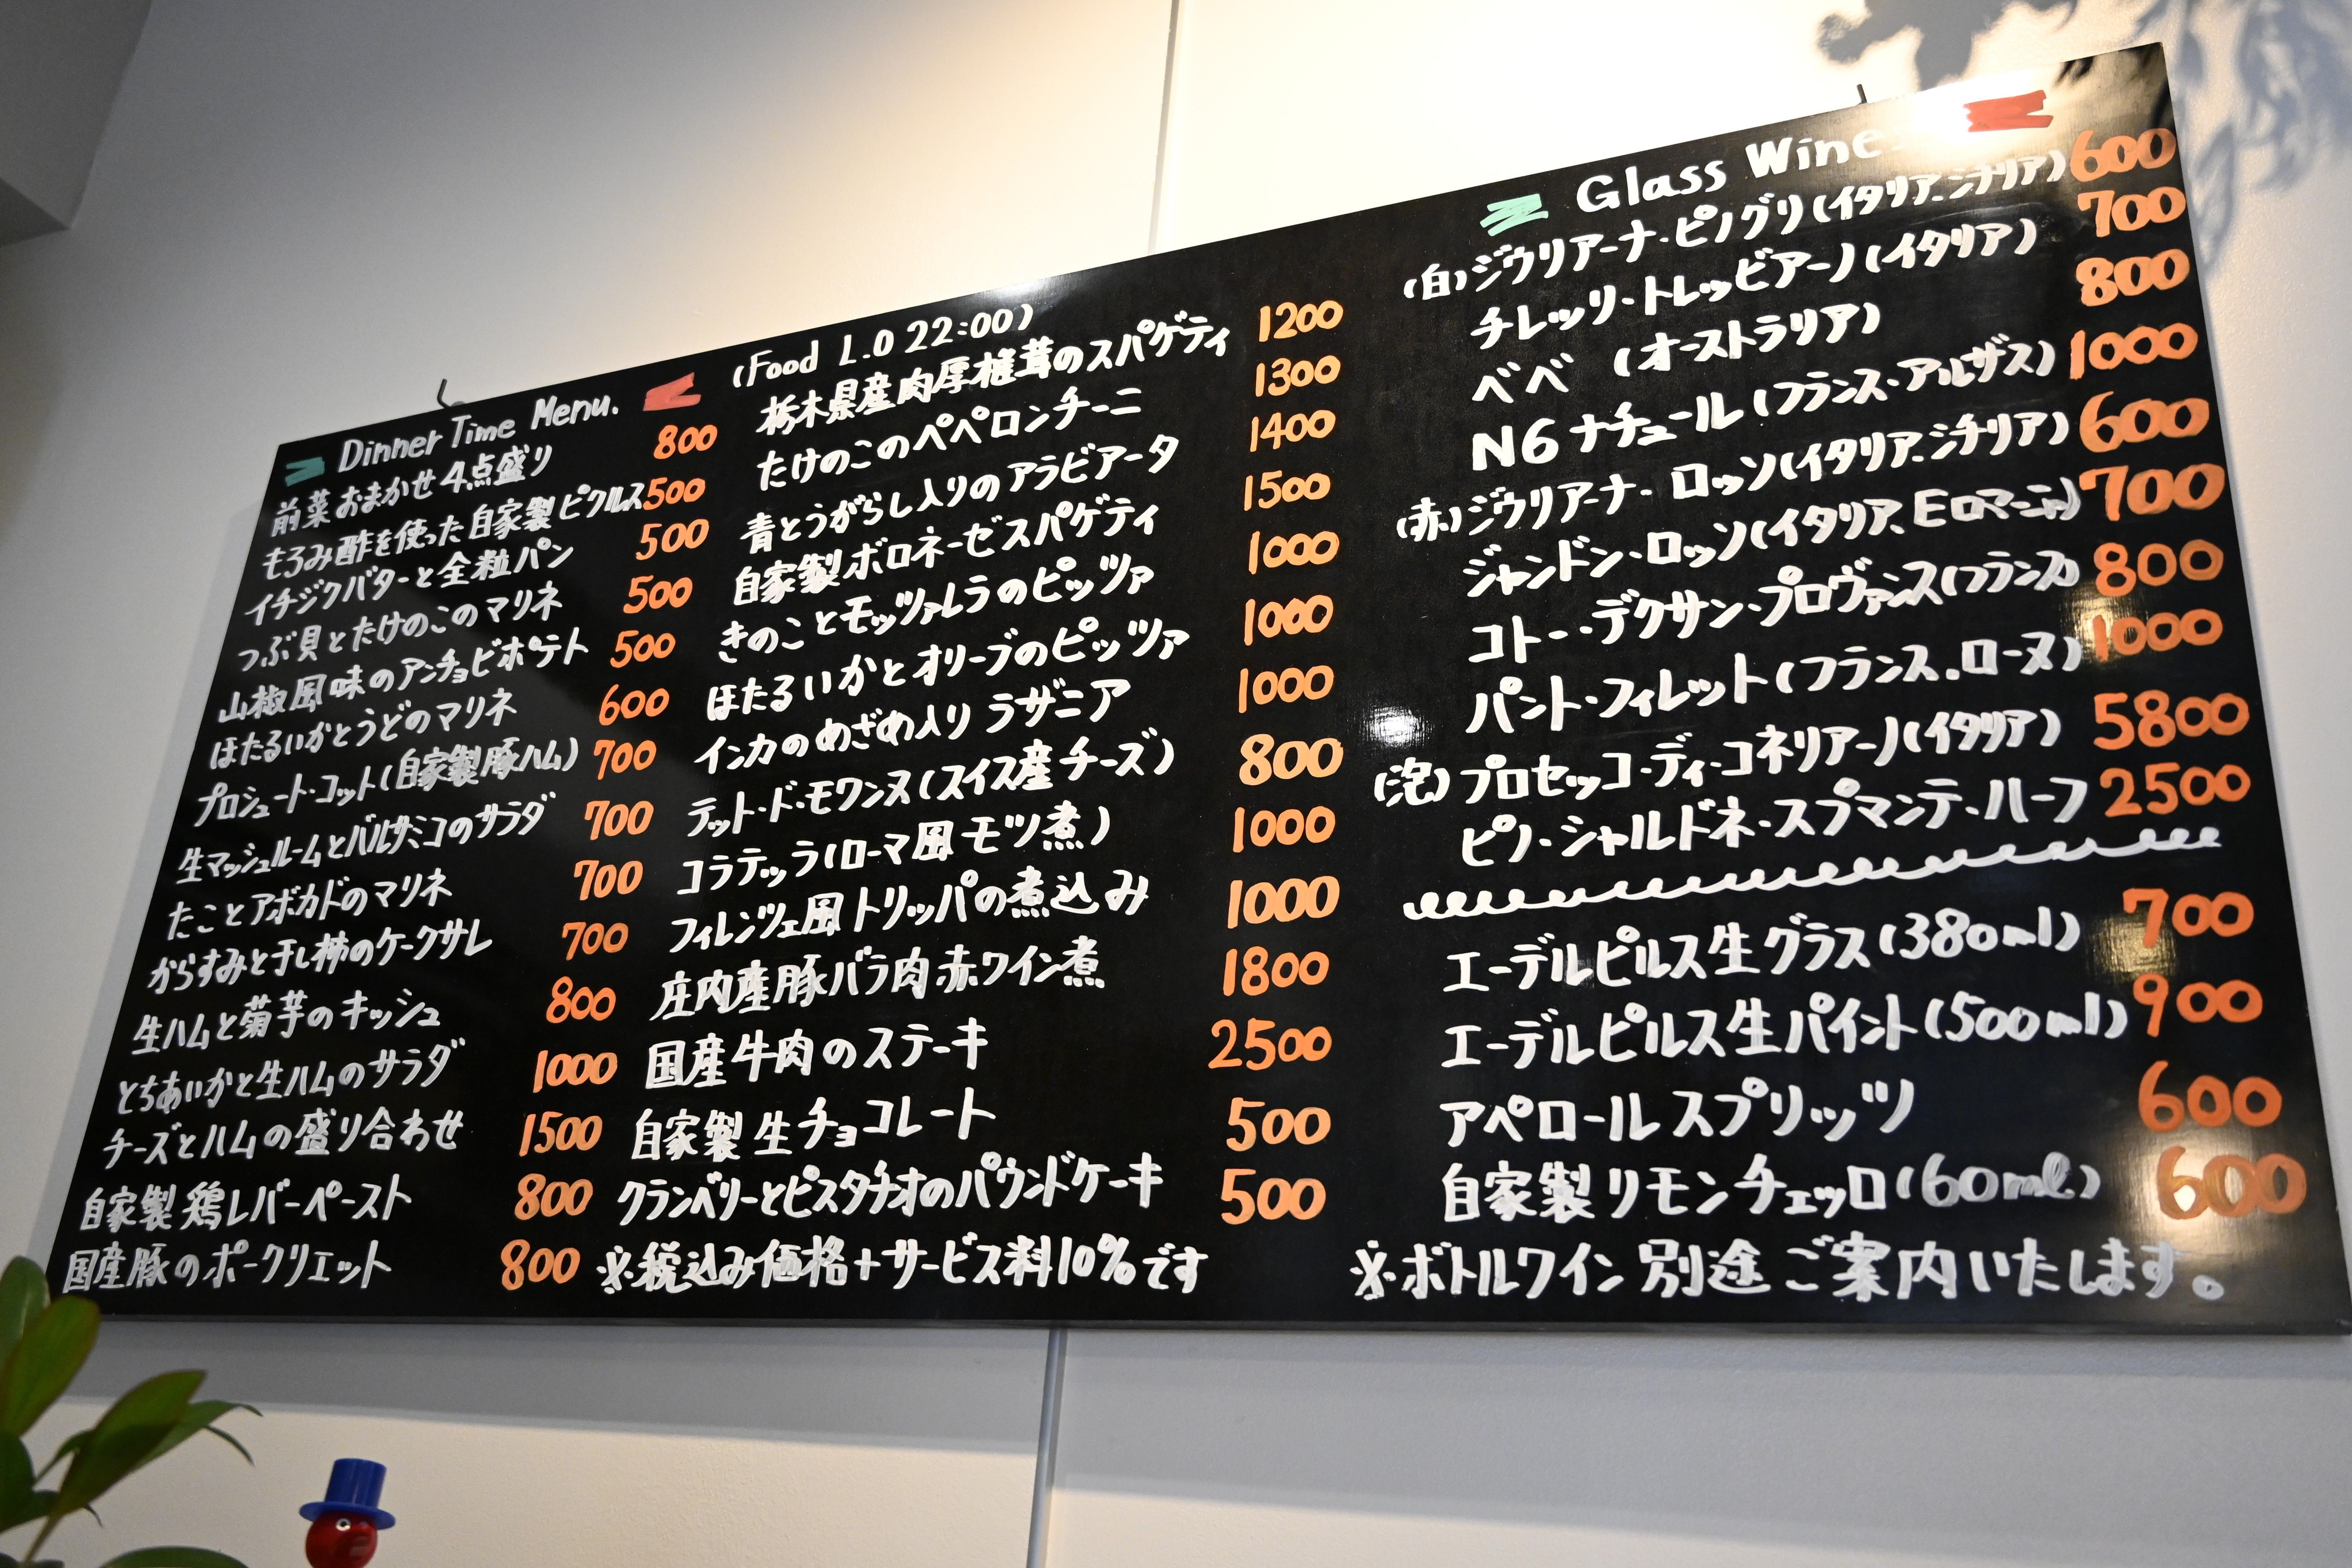 Dinner Time Menu.
前菜おまかせ4点盛り 800
もろみ酢を使った自家製ピクルス 500
イチジクバターと全粒パン 500
つぶ貝とたけのこのマリネ 500
山椒風味のアンチョビポテト 500
ほたるいかとうどのマリネ 600
プロシュート・コット(自家製豚ハム) 700
生マッシュルームとバルサミコのサラダ 700
たことアボカドのマリネ 700
からすみと干し柿のケークサレ 700
生ハムと菊芋のキッシュ 800
とちあいかと生ハムのサラダ 1000
チーズとハムの盛り合わせ 1500
自家製鶏レバーペースト 800
国産豚のポークリエット 800
(Food L.O 22:00)
栃木県産肉厚椎茸のスパゲティ 1200
たけのこのペペロンチーニ 1300
青とうがらし入りのアラビアータ 1400
自家製ボロネーゼスパゲティ 1500
きのことモッツァレラのピッツァ 1000
ほたるいかとオリーブのピッツァ 1000
インカのめざめ入りラザニア 1000
テット・ド・モワンヌ(スイス産チーズ) 800
コラテッラ(ローマ風モツ煮) 1000
フィレンツェ風トリッパの煮込み 1000
庄内産豚バラ肉赤ワイン煮 1800
国産牛肉のステーキ 2500
自家製生チョコレート 500
クランベリーとピスタチオのパウンドケーキ 500
※税込み価格+サービス料10%です
Glass Wine
(白)ジウリアーナ・ピノグリ(イタリア.シチリア) 600
チレッリ・トレッビアーノ(イタリア) 700
ベベ (オーストラリア) 800
N6ナチュール(フランス・アルザス) 1000
(赤)ジウリアーナ・ロッソ(イタリア.シチリア) 600
ジャンドン・ロッソ(イタリア.Eロマーニャ) 700
コトー・デクサン・プロヴァンス(フランス) 800
パント・フィレット(フランス.ローヌ) 1000
(泡)プロセッコ・ディ・コネリアーノ(イタリア) 5800
ピノ・シャルドネ・スプマンテ・ハーフ 2500
エーデルピルス生グラス(380ml) 700
エーデルピルス生パイント(500ml) 900
アペロールスプリッツ 600
自家製リモンチェッロ(60ml) 600
※ボトルワイン別途ご案内いたします。